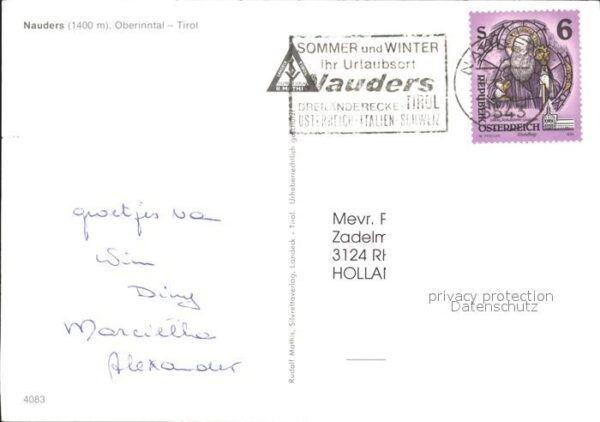 Nauders (1400 m), Oberinntal – Tirol
SOMMER und WINTER
Ihr Urlaubsort
Nauders
DREILÄNDERECKE - TIROL
ÖSTERREICH - ITALIEN - SCHWEIZ
S 6
REPUBLIK
ÖSTERREICH
6543
groetjes va
Wim
Diny
Marcietha
Alexander
Mevr. P
Zadelm
3124 RH
HOLLAN
privacy protection
Datenschutz
Rudolf Mathis, Silvrettaverlag, Landeck - Tirol. Urheberrechtlich
4083